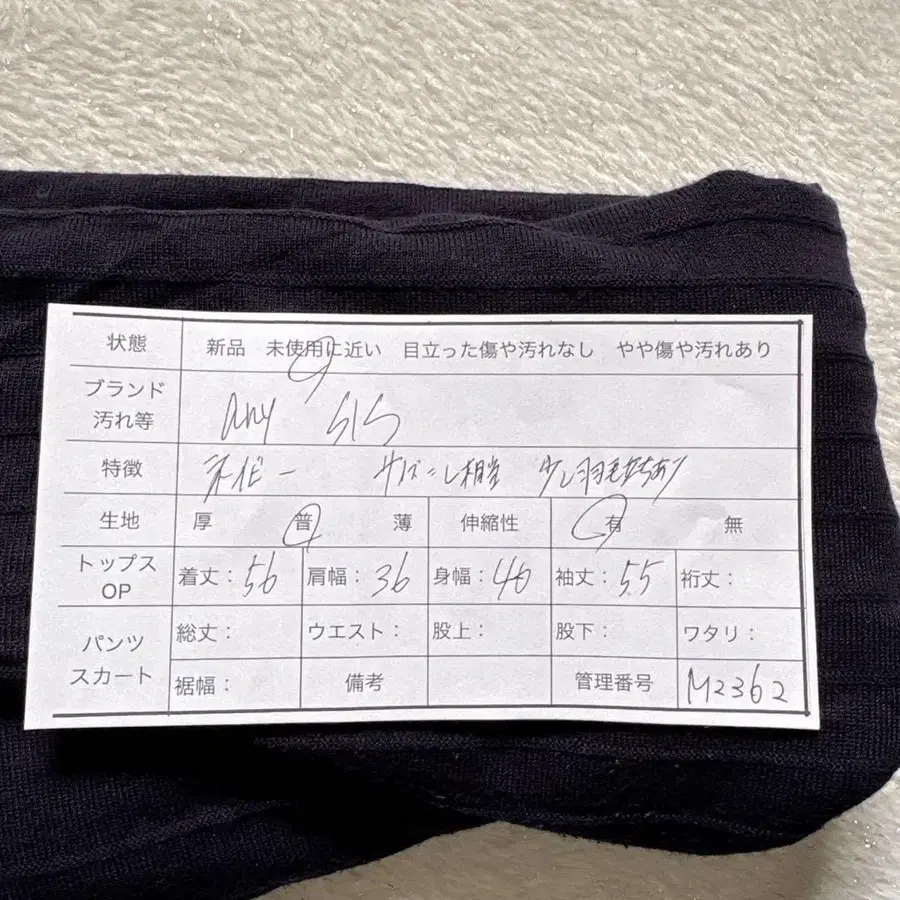 状態 新品 未使用に近い 目立った傷や汚れなし やや傷や汚れあり
ブランド
汚れ等
any SIS
特徴 ネイビー 相当 少し羽毛立ちあり
生地 厚 普 薄 伸縮性 有 無
トップス
OP
着丈：56 肩幅：36 身幅：40 袖丈：55 裄丈：
パンツ
スカート
総丈： ウエスト： 股上： 股下： ワタリ：
裾幅： 備考 管理番号 M2362